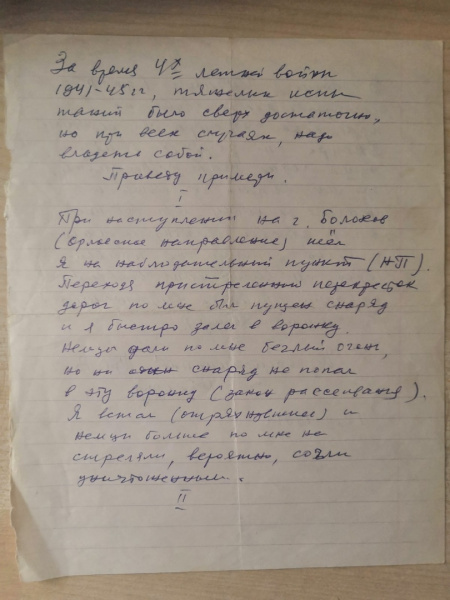 За время 4х летней войны
1941-45 гг, тяжелых испы
таний было сверх достаточно,
но при всех случаях, надо
владеть собой.
Приведу примеры.
I
При наступлении на г. Болхов
(орловское направление) шёл
я на наблюдательный пункт (НП).
Переходя пристрелянный перекресток
дорог по мне был пущен снаряд
и я быстро залег в воронку.
Немцы дали по мне беглый огонь,
но ни один снаряд не попал
в эту воронку (закон рассеивания).
Я встал (отряхнувшись) и
немцы больше по мне не
стреляли, вероятно, сочли
уничтоженным.
II